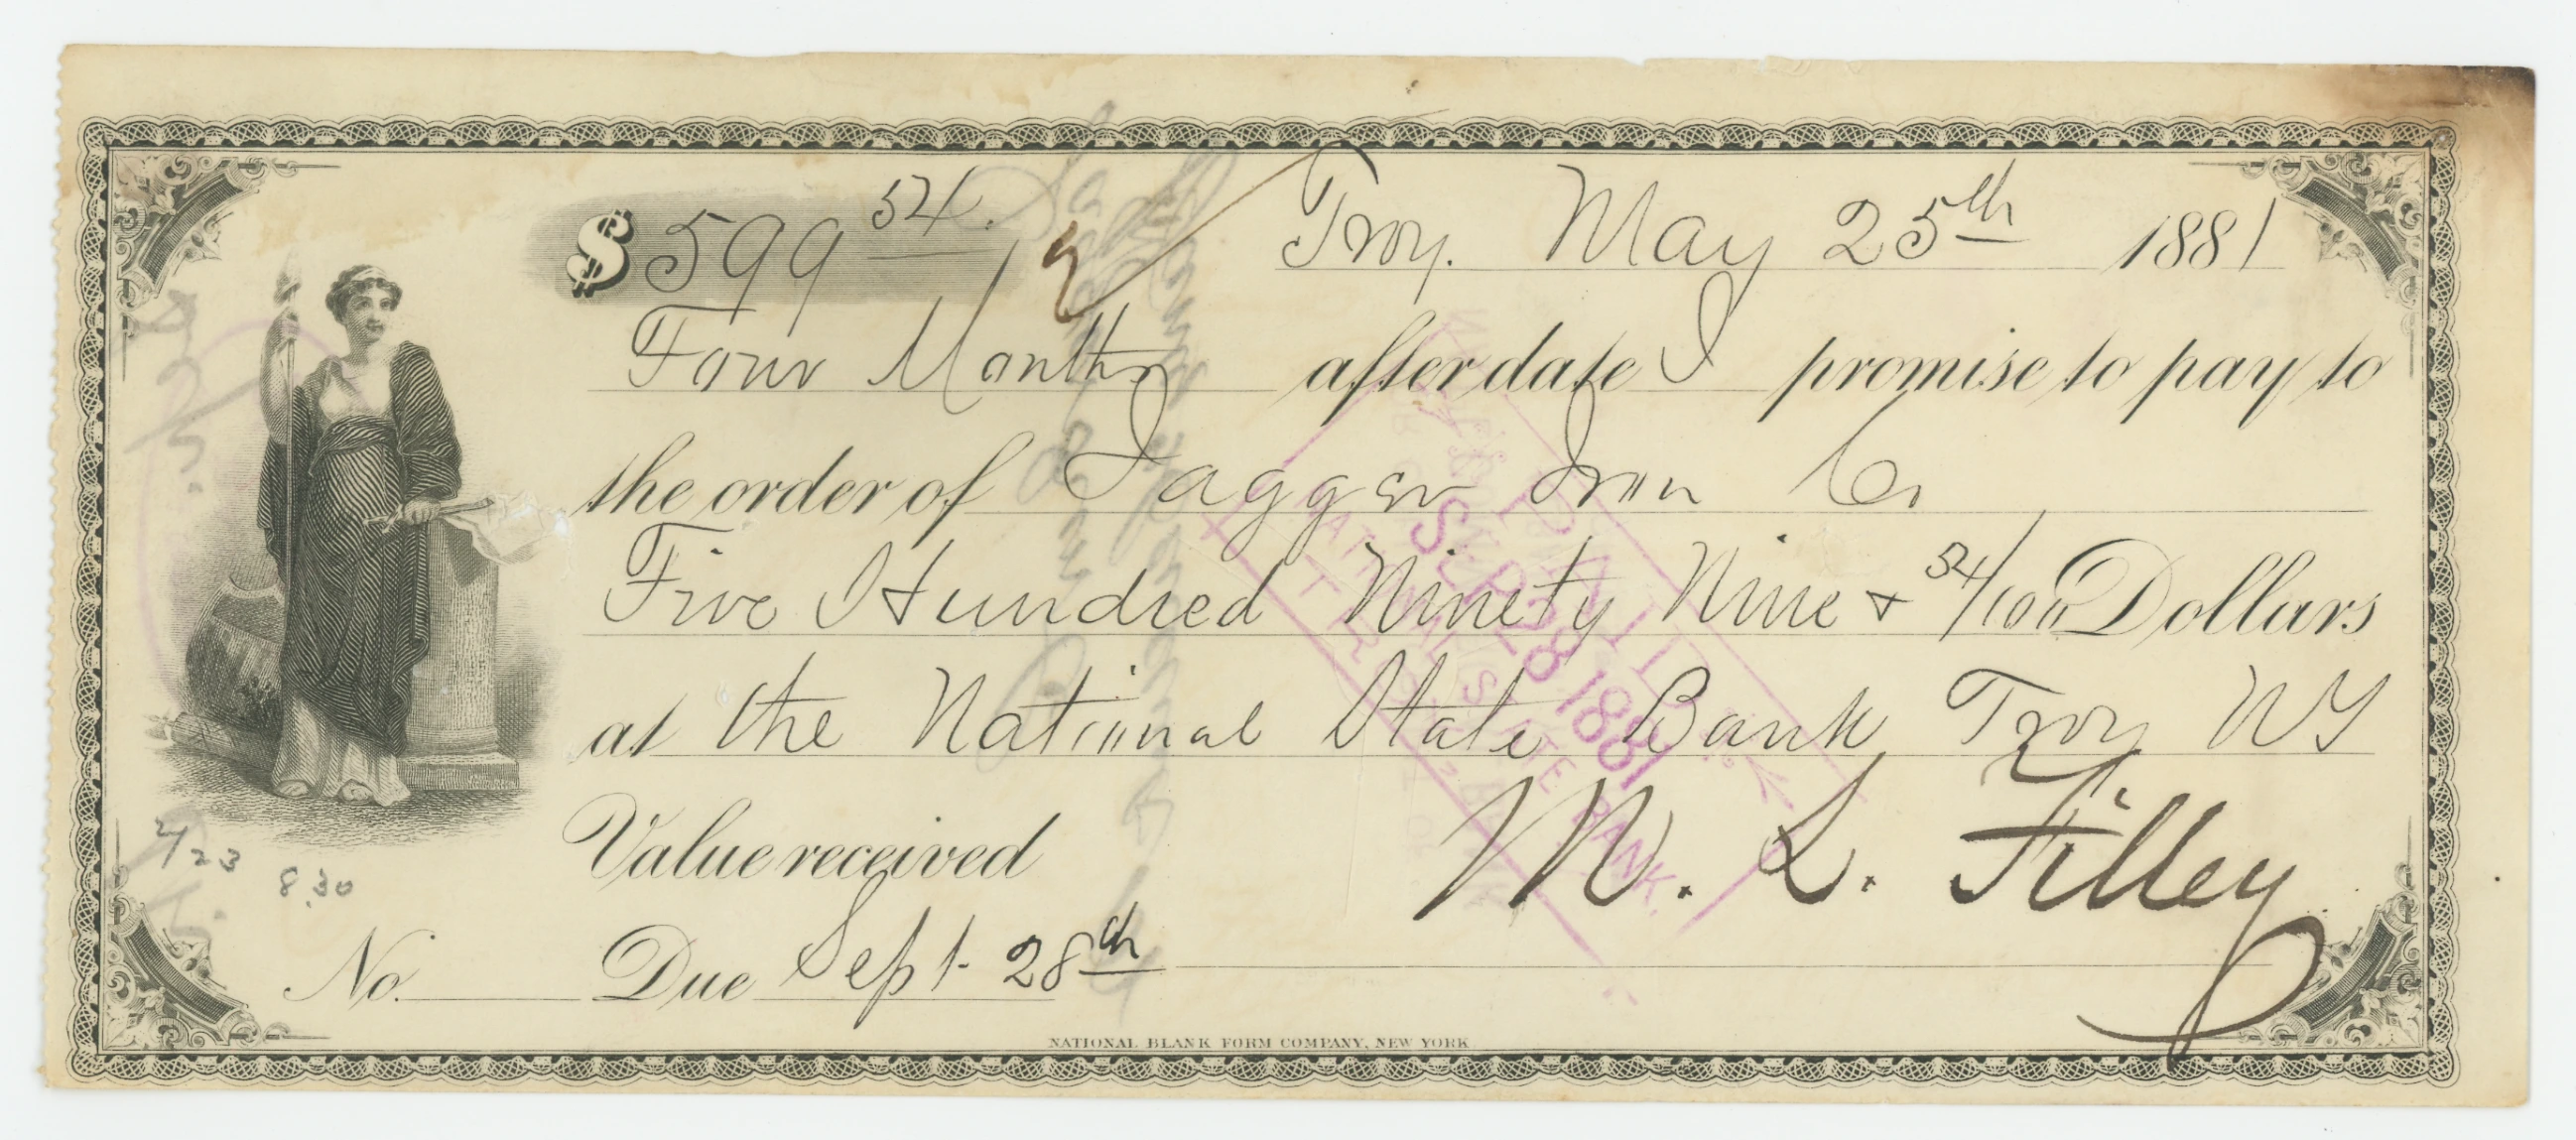 $ 599 54. Troy. May 25th 1881
Four Months after date I promise to pay to
the order of Jagger Iron Co
Five Hundred Ninety Nine & 54/100 Dollars
at the National State Bank Troy NY
Value received M. L. Filley
4/23 8.30
No. Due Sept. 28th
NATIONAL BLANK FORM COMPANY, NEW YORK
PAID
SEP 28 1881
NATIONAL STATE BANK.
TROY